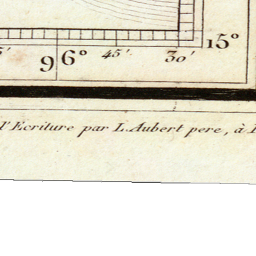 15°
5' 96° 45' 30'
l'Ecriture par L. Aubert pere, à